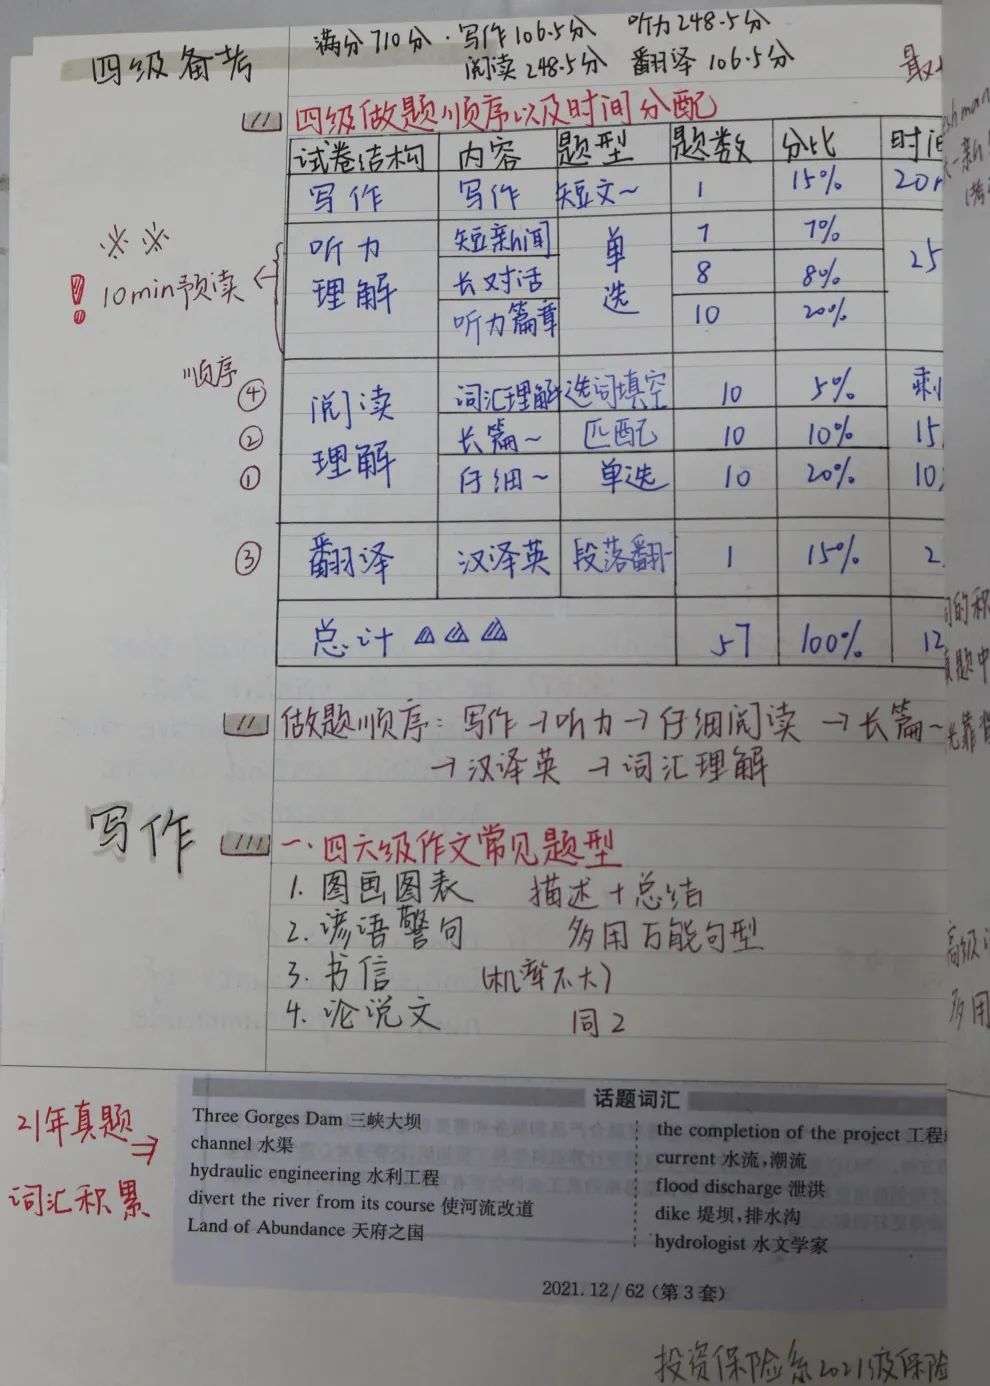 四级备考
满分710分. 写作106.5分 听力248.5分
阅读248.5分 翻译106.5分
四级做题顺序以及时间分配
试卷结构 内容 题型 题数 分比
写作 写作 短文~ 1 15%
听力理解 短新闻 单选 7 7% 25
长对话 8 8%
听力篇章 10 20%
!10min预读
顺序
④ 阅读理解 词汇理解 选词填空 10 5% 剩
② 长篇~ 匹配 10 10% 15
① 仔细~ 单选 10 20% 10
③ 翻译 汉译英 段落翻- 1 15%
总计 57 100% 12
做题顺序: 写作→听力→仔细阅读→长篇~
→汉译英→词汇理解
写作
一.四六级作文常见题型
1. 图画图表 描述+总结
2. 谚语警句 多用万能句型
3. 书信 (机率不大)
4. 论说文 同2
21年真题
词汇积累
话题词汇
Three Gorges Dam 三峡大坝
channel 水渠
hydraulic engineering 水利工程
divert the river from its course 使河流改道
Land of Abundance 天府之国
the completion of the project 工程
current 水流,潮流
flood discharge 泄洪
dike 堤坝,排水沟
hydrologist 水文学家
2021.12/62(第3套)
投资保险系2021级保险